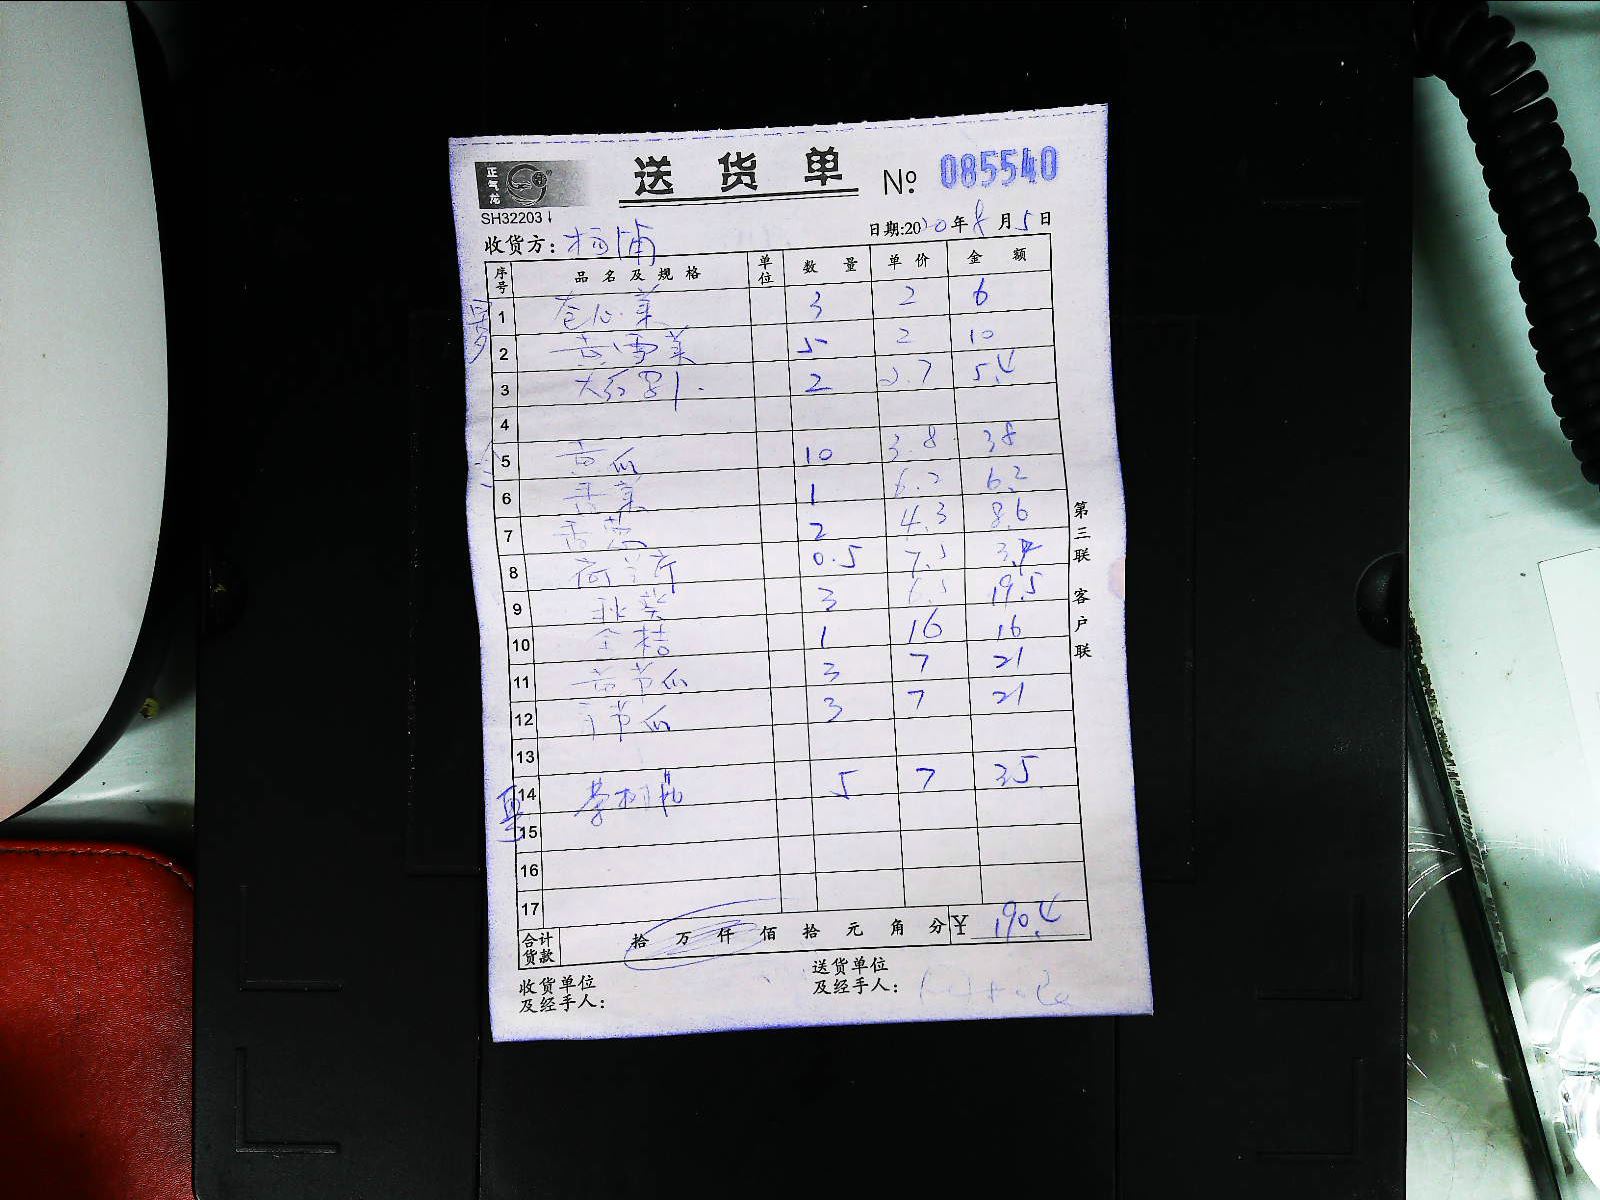 正气龙
送货单 № 085540
SH32203
收货方：杨浦 日期:2020年8月5日
序号 品名及规格 单位 数量 单价 金额
1 苍心菜 3 2 6
2 黄雪菜 5 2 10
3 大红 2 2.7 5.4
4
5 黄瓜 10 3.8 38
6 香菜 1 6.2 6.2
7 香葱 2 4.3 8.6
8 荷兰芹 0.5 7.5 3.7
9 秋葵 3 6.5 19.5
10 金桔 1 16 16
11 黄节瓜 3 7 21
12 节瓜 3 7 21
13
14 5 7 35
15
16
17
合计货款 拾万仟佰拾元角分 ¥ 190.4
收货单位及经手人：
送货单位及经手人：
第三联 客户联